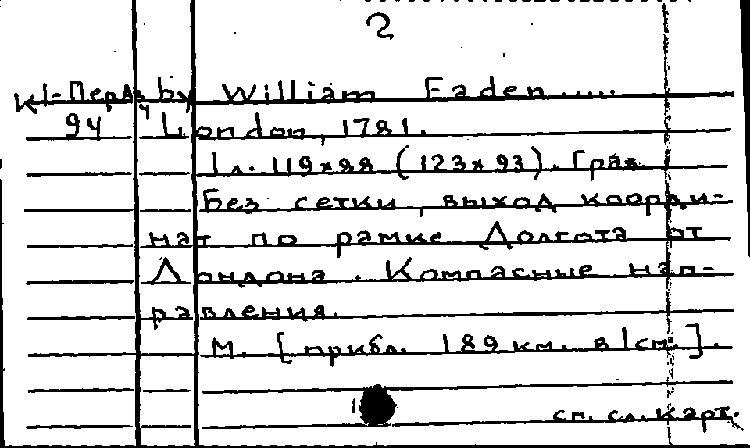 2
К1-Пер.Аз by William Faden.....
94 4 London, 1781.
1 л. 119×88 (123×93). Грав.
Без сетки, выход коорди-
нат по рамке Долгота от
Лондона. Компасные нап-
равления.
М. [прибл. 189 км. в 1 см.].
см. сл. карт.